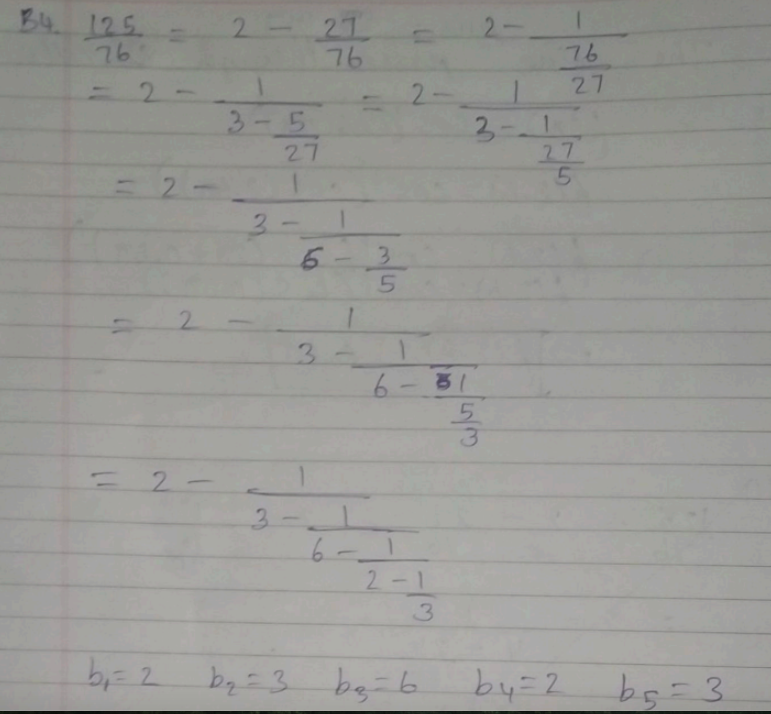 B4. 125/76 = 2 - 27/76 = 2 - 1/(76/27)
= 2 - 1/(3 - 5/27) = 2 - 1/(3 - 1/(27/5))
= 2 - 1/(3 - 1/(6 - 3/5))
= 2 - 1/(3 - 1/(6 - 1/(5/3)))
= 2 - 1/(3 - 1/(6 - 1/(2 - 1/3)))
b₁=2 b₂=3 b₃=6 b₄=2 b₅=3